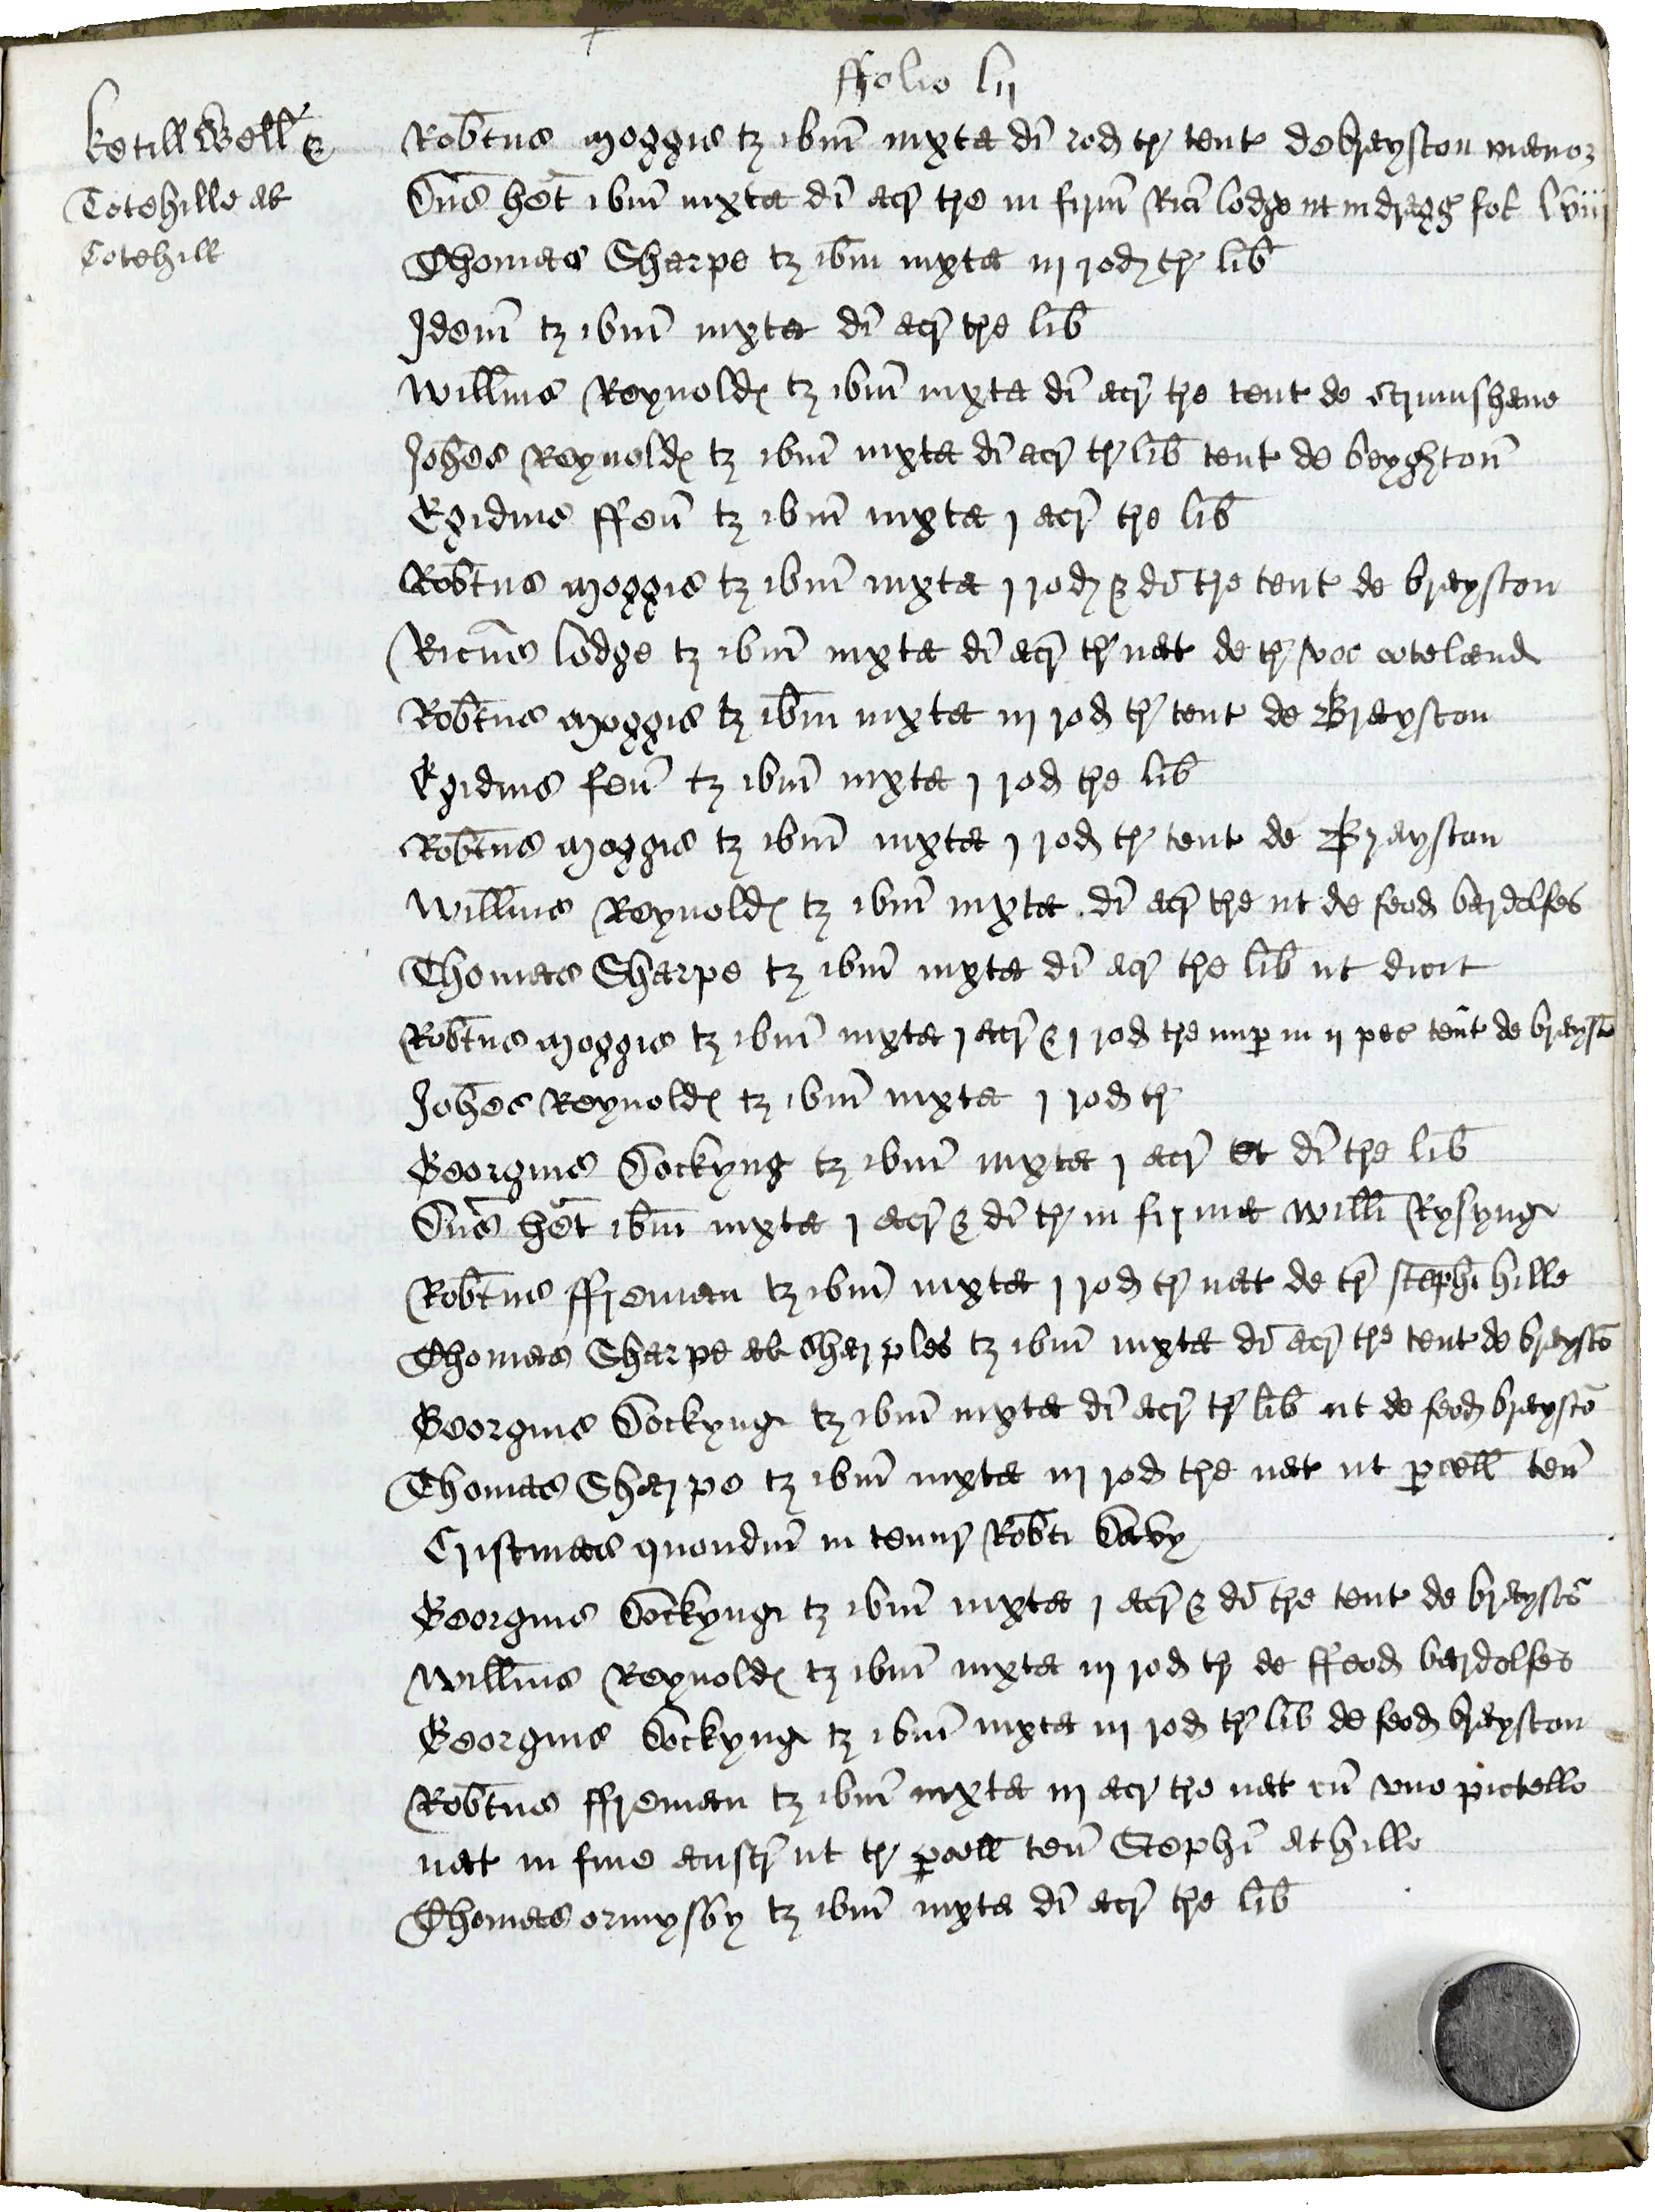 ffolio lij
Ketill Well' &
Totehille al
Cotehill
Rob̄tus Moggis tʒ ibm̄ iuxta di rod tr̄ tent de brayston manor
Dn̄s het ibm̄ iuxta di acr̄ tre in firm̄ Rici lodge ut in dragg fol lviij
Thomas Sharpe tʒ ibm̄ iuxta iij rod tr̄ lib̄
Idem̄ tʒ ibm̄ iuxta di acr̄ tre lib̄
Willm̄s Reynold tʒ ibm̄ iuxta di acr̄ tre tent de Scrimshawe
Joh̄es Reynold tʒ ibm̄ iuxta di acr̄ tr̄ lib̄ tent de beyghton̄
Egidius ffen̄ tʒ ibm̄ iuxta j acr̄ tre lib̄
Rob̄tus Moggis tʒ ibm̄ iuxta j rod & di tre tent de brayston
Ricūs lodge tʒ ibm̄ iuxta di acr̄ tr̄ nat de tr̄ voc coteland
Rob̄tus Moggis tʒ ib̄m iuxta iij rod tr̄ tent de Brayston
Egidius fen̄ tʒ ibm̄ iuxta j rod tre lib̄
Rob̄tus Moggis tʒ ibm̄ iuxta j rod tr̄ tent de Brayston
Willm̄s Reynold tʒ ibm̄ iuxta di acr̄ tre ut de feod bardolfes
Thomas Sharpe tʒ ibm̄ iuxta di acr̄ tre lib̄ ut dicit
Rob̄tus Moggis tʒ ibm̄ iuxta j acr̄ & j rod tre nup in ij pec tent de braystō
Joh̄es Reynold tʒ ibm̄ iuxta j rod tr̄
Georgius Dockyng tʒ ibm̄ iuxta j acr̄ et di tre lib̄
Dn̄s het ibm̄ iuxta j acr̄ & di tr̄ in firma Willi Rysyng
Rob̄tus ffreman tʒ ibm̄ iuxta j rod tr̄ nat de tr̄ Stephi hille
Thomas Sharpe al Sharples tʒ ibm̄ iuxta di acr̄ tre tent de braystō
Georgius Dockyng tʒ ibm̄ iuxta di acr̄ tr̄ lib̄ ut de feod braystō
Thomas Sharpe tʒ ibm̄ iuxta iij rod tre nat ut pcell ten̄
Cristmas quondm̄ in tenur̄ Rob̄ti Davy
Georgius Dockyng tʒ ibm̄ iuxta j acr̄ & di tre tent de braystō
Willm̄s Reynold tʒ ibm̄ iuxta iij rod tr̄ de ffeod bardolfes
Georgius Dockyng tʒ ibm̄ iuxta iij rod tr̄ lib̄ de feod brayston
Rob̄tus ffreman tʒ ibm̄ iuxta iij acr̄ tre nat cū uno pictello
nat in fine austr̄ ut tr̄ pcell ten̄ Stephi athille
Thomas ormysby tʒ ibm̄ iuxta di acr̄ tre lib̄